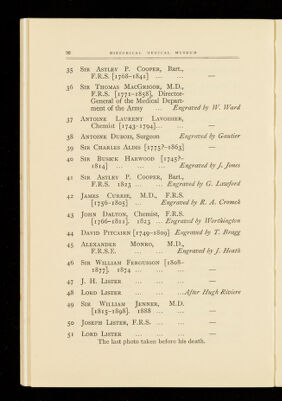 90 HISTORICAL MEDICAL MUSEUM
35 SIR ASTLEY P. COOPER, Bart.,
F.R.S. [1768-1841] ... ... —
36 SIR THOMAS MACGRIGOR, M.D.,
F.R.S. [1771-1858], Director-
General of the Medical Depart-
ment of the Army ... Engraved by W. Ward
37 ANTOINE LAURENT LAVOISIER,
Chemist [1743-1794]... ... —
38 ANTOINE DUBOIS, Surgeon Engraved by Gautier
39 SIR CHARLES ALDIS [1775?-1863] —
40 SIR BUSICK HARWOOD [1745?-
1814] ... ... ... Engraved by J. Jones
41 SIR ASTLEY P. COOPER, Bart.,
F.R.S. 1823 ... ... Engraved by G.
42 JAMES CURRIE, M.D., F.R.S.
[1756-1805] ... Engraved by R. A. Cromek
43 JOHN DALTON, Chemist, F.R.S.
[1766-1844]. 1823 ... Engraved by Worthington
44 DAVID PITCAIRN [1749-1809] Engraved by T. Bragg
45 ALEXANDER MONRO, M.D.,
F.R.S.E. ... Engraved by J. Heath
46 SIR WILLIAM FERGUSSON [1808-
1877]. 1874 ... ... ... —
47 J. H. LISTER ... ... ... —
48 LORD LISTER ... ... ...After Hugh Riviere
49 SIR WILLIAM JENNER, M.D.
[1815-1898]. 1888 ... ... —
50 JOSEPH LISTER, F.R.S. ... ... —
51 LORD LISTER ... ... ... —
The last photo taken before his death.